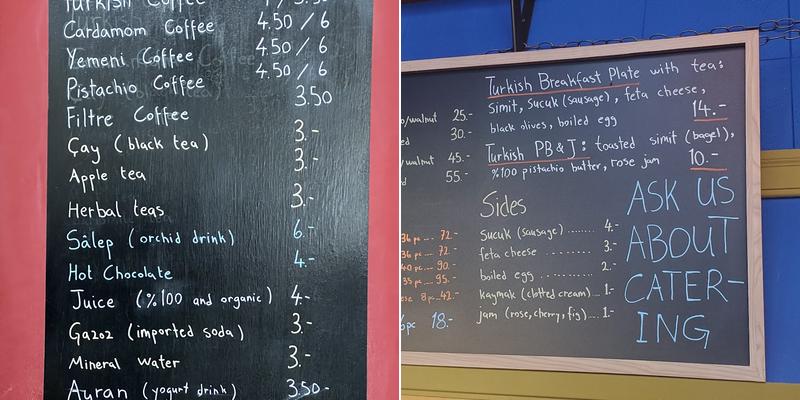 Turkish Coffee
Cardamom Coffee 4.50 / 6
Yemeni Coffee 4.50 / 6
Pistachio Coffee 4.50 / 6
Filtre Coffee 3.50
Çay (black tea) 3.-
Apple tea 3.-
Herbal teas 3.-
Sâlep (orchid drink) 6.-
Hot Chocolate 4.-
Juice (%100 and organic) 4.-
Gazoz (imported soda) 3.-
Mineral water 3.-
Ayran (yogurt drink) 3.50-
/walnut 25.-
30.-
/walnut 45.-
55.-
36 pc... 72.-
36 pc... 72.-
40 pc... 90.-
35 pc... 95.-
8 pc..42.-
6pc 18.-
Turkish Breakfast Plate with tea:
Simit, Sucuk (sausage), feta cheese,
black olives, boiled egg 14.-
Turkish PB & J: toasted simit (bagel),
%100 pistachio butter, rose jam 10.-
Sides
Sucuk (sausage) ....... 4.-
feta cheese ......... 3.-
boiled egg .......... 2.-
kaymak (clotted cream)... 1-
jam (rose, cherry, fig)... 1-
ASK US
ABOUT
CATER-
ING